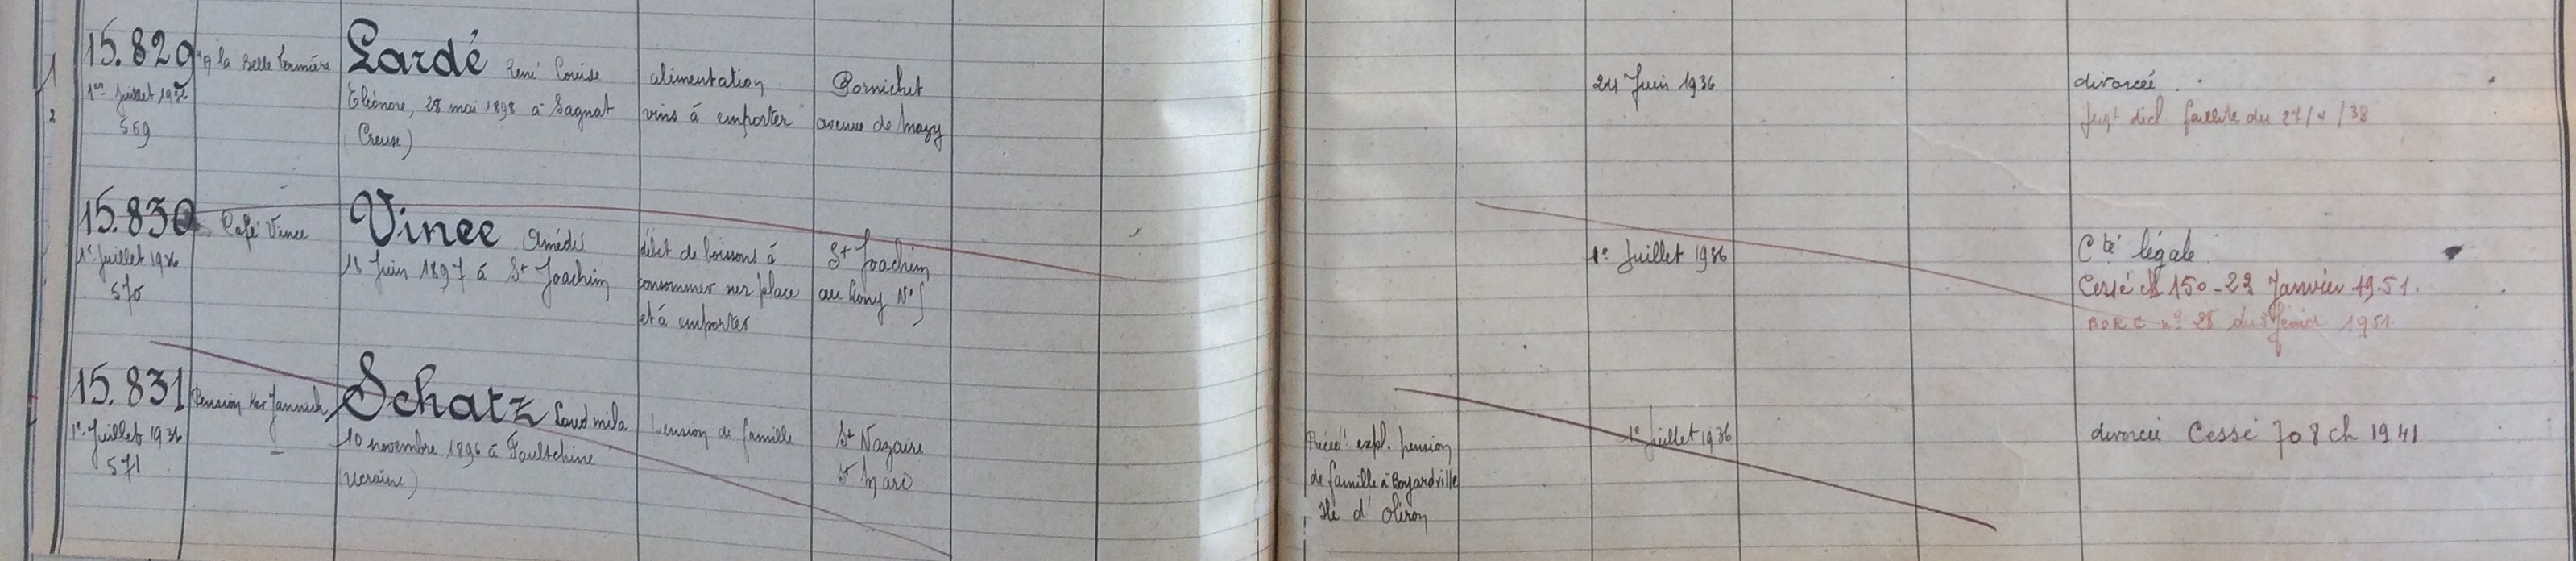 15.829 "A la Belle Fermière Lardé René Louise alimentation Pornichet 24 Juin 1936 divorcée
1er Juillet 1936 Eléonore, 28 mai 1898 à Sagnat vins à emporter avenue de Mazy Jugt décl faillite du 27/4/38
569 (Creuse)
15.830 Café Vince Vince Amédée débit de boissons à St Joachim 1er Juillet 1936 Cté légale
1er Juillet 1936 18 Juin 1897 à St Joachim consommer sur place au Cessé ch 150-23 Janvier 1951.
570 et à emporter B.O.R.C n° 28 du 1951
15.831 Pension Ker Jannick Schatz Loudmila Pension de famille St Nazaire Précédt expl. pension 1er Juillet 1936 divorcée Cessé 708 ch 1941
1er Juillet 1936 10 novembre 1896 à Toultchine St Marc de famille à Boyardville
571 (Ucraine) Ile d'Oléron
1
2